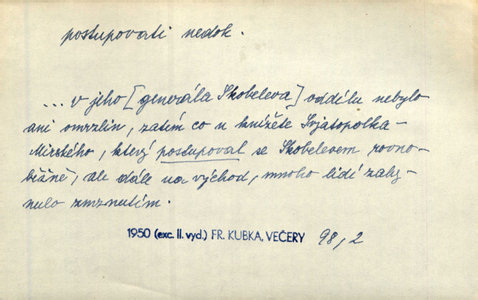 postupovati nedok.
... v jeho [generála Skobeleva] oddílu nebylo
ani omrzlin, zatím co u knížete Svjatopolka-
Mirského, který postupoval se Skobelevem rovno-
běžně, ale dále na východ, mnoho lidí zahy-
nulo zmrznutím.
1950 (exc. II. vyd.) FR. KUBKA, VEČERY 98,2